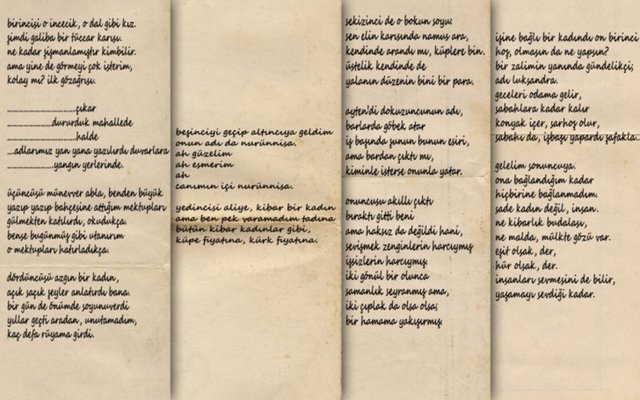 birincisi o incecik, o dal gibi kız.
şimdi galiba bir tüccar karısı.
ne kadar şişmanlamıştır kimbilir.
ama yine de görmeyi çok isterim,
kolay mı? ilk gözağrısı.
..............................çıkar
....................dururduk mahallede
..............................halde
...adlarımız yan yana yazılırdı duvarlara
....................yangın yerlerinde.
üçüncüsü münevver abla, benden büyük
yazıp yazıp bahçesine attığım mektupları
gülmekten katılırdı, okudukça.
bense bugünmüş gibi utanırım
o mektupları hatırladıkça.
dördüncüsü azgın bir kadın,
açık saçık şeyler anlatırdı bana.
bir gün de önümde soyunuverdi
yıllar geçti aradan, unutamadım,
kaç defa rüyama girdi.
beşinciyi geçip altıncıya geldim
onun adı da nurünnisa.
ah güzelim
ah esmerim
ah
canımın içi nurünnisa.
yedincisi aliye, kibar bir kadın
ama ben pek varamadım tadına
bütün kibar kadınlar gibi,
küpe fiyatına, kürk fiyatına.
sekizinci de o bokun soyu:
sen elin karısında namus ara,
kendinde arandı mı, küplere bin.
üstelik kendinde de
yalanın düzenin bini bir para.
ayten'di dokuzuncunun adı,
barlarda göbek atar
iş başında şunun bunun esiri,
ama bardan çıktı mı,
kiminle isterse onunla yatar.
onuncusu akıllı çıktı
bıraktı gitti beni
ama haksız da değildi hani,
sevişmek zenginlerin harcıymış
işsizlerin harcıymış.
iki gönül bir olunca
samanlık seyranmış ama,
iki çıplak da olsa olsa;
bir hamama yakışırmış.
işine bağlı bir kadındı on birinci
hoş, olmasın da ne yapsın?
bir zalimin yanında gündelikçi;
adı luksandra.
geceleri odama gelir,
sabahlara kadar kalır
konyak içer, sarhoş olur,
sabahı da, işbaşı yapardı şafakla...
gelelim sonuncuya.
ona bağlandığım kadar
hiçbirine bağlanmadım.
sade kadın değil, insan.
ne kibarlık budalası,
ne malda, mülkte gözü var.
eşit olsak, der,
hür olsak, der.
insanları sevmesini de bilir,
yaşamayı sevdiği kadar.